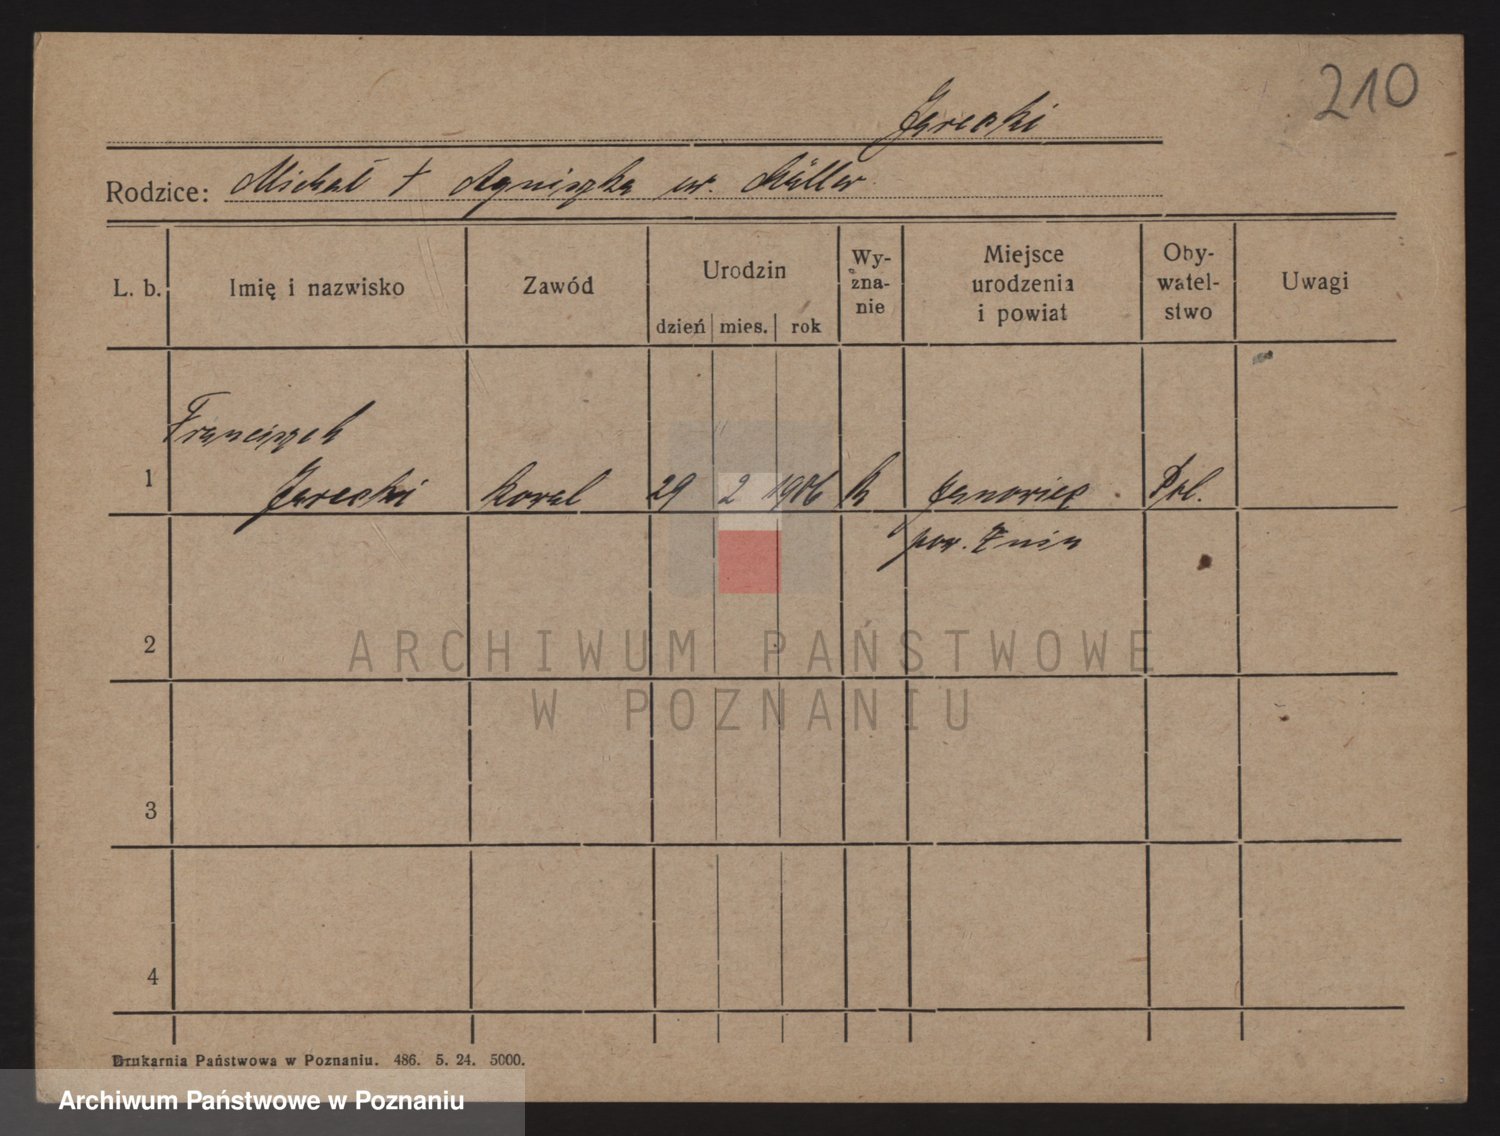 210
Jarecki
Rodzice: Michał † Agnieszka ur. Müller
L. b.
Imię i nazwisko
Zawód
Urodzin
dzień mies. rok
Wy-
zna-
nie
Miejsce
urodzenia
i powiat
Oby-
watel-
stwo
Uwagi
Franciszek
1 Jarecki kowal 29 2 1906 k Janowiec Pol.
pow. Żnin
2
3
4
ARCHIWUM PAŃSTWOWE
W POZNANIU
Drukarnia Państwowa w Poznaniu. 486. 5. 24. 5000.
Archiwum Państwowe w Poznaniu